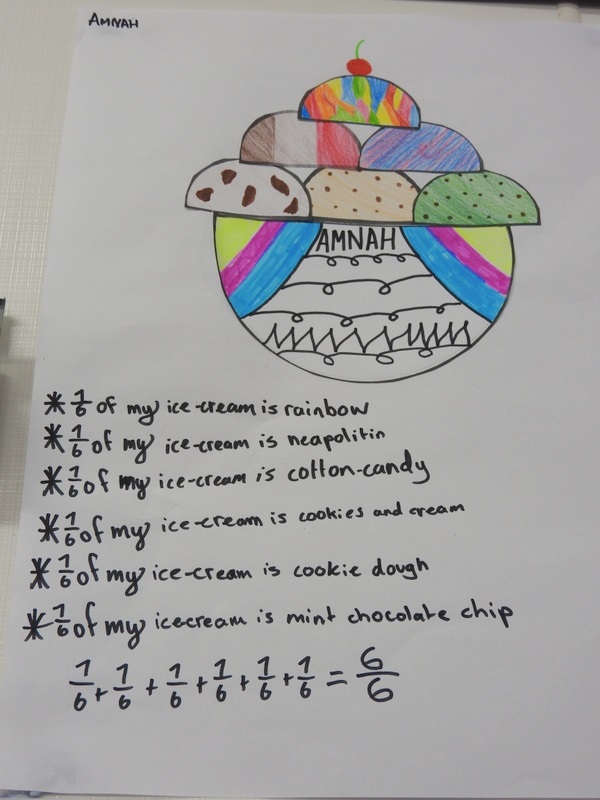 AMNAH
AMNAH
* 1/6 of my ice-cream is rainbow
* 1/6 of my ice-cream is neapolitin
* 1/6 of my ice-cream is cotton-candy
* 1/6 of my ice-cream is cookies and cream
* 1/6 of my ice-cream is cookie dough
* 1/6 of my icecream is mint chocolate chip
1/6 + 1/6 + 1/6 + 1/6 + 1/6 + 1/6 = 6/6